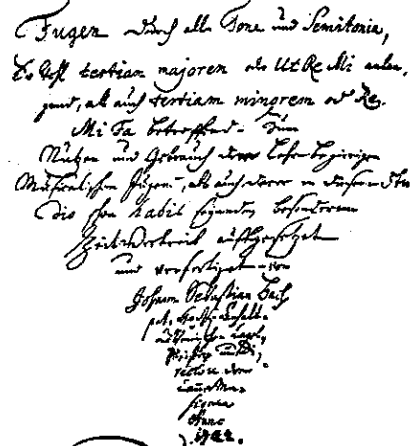 Fugen durch alle Tone und Semitonia,
So wohl tertiam majorem oder Ut Re Mi anlan-
gend, als auch tertiam minorem oder Re
Mi Fa betreffend. Zum
Nutzen und Gebrauch der Lehrbegierigen
Musicalischen Jugend, als auch derer in diesem stu-
dio schon habil seyenden besonderem
Zeitvertreib auffgesetzet
und verfertiget von
Johann Sebastian Bach
p. t. Hochf. Anhalt-
Cöthenischen Capel-
Meistern und Di-
rectore derer
Camer Mu-
siquen
Anno
1722.